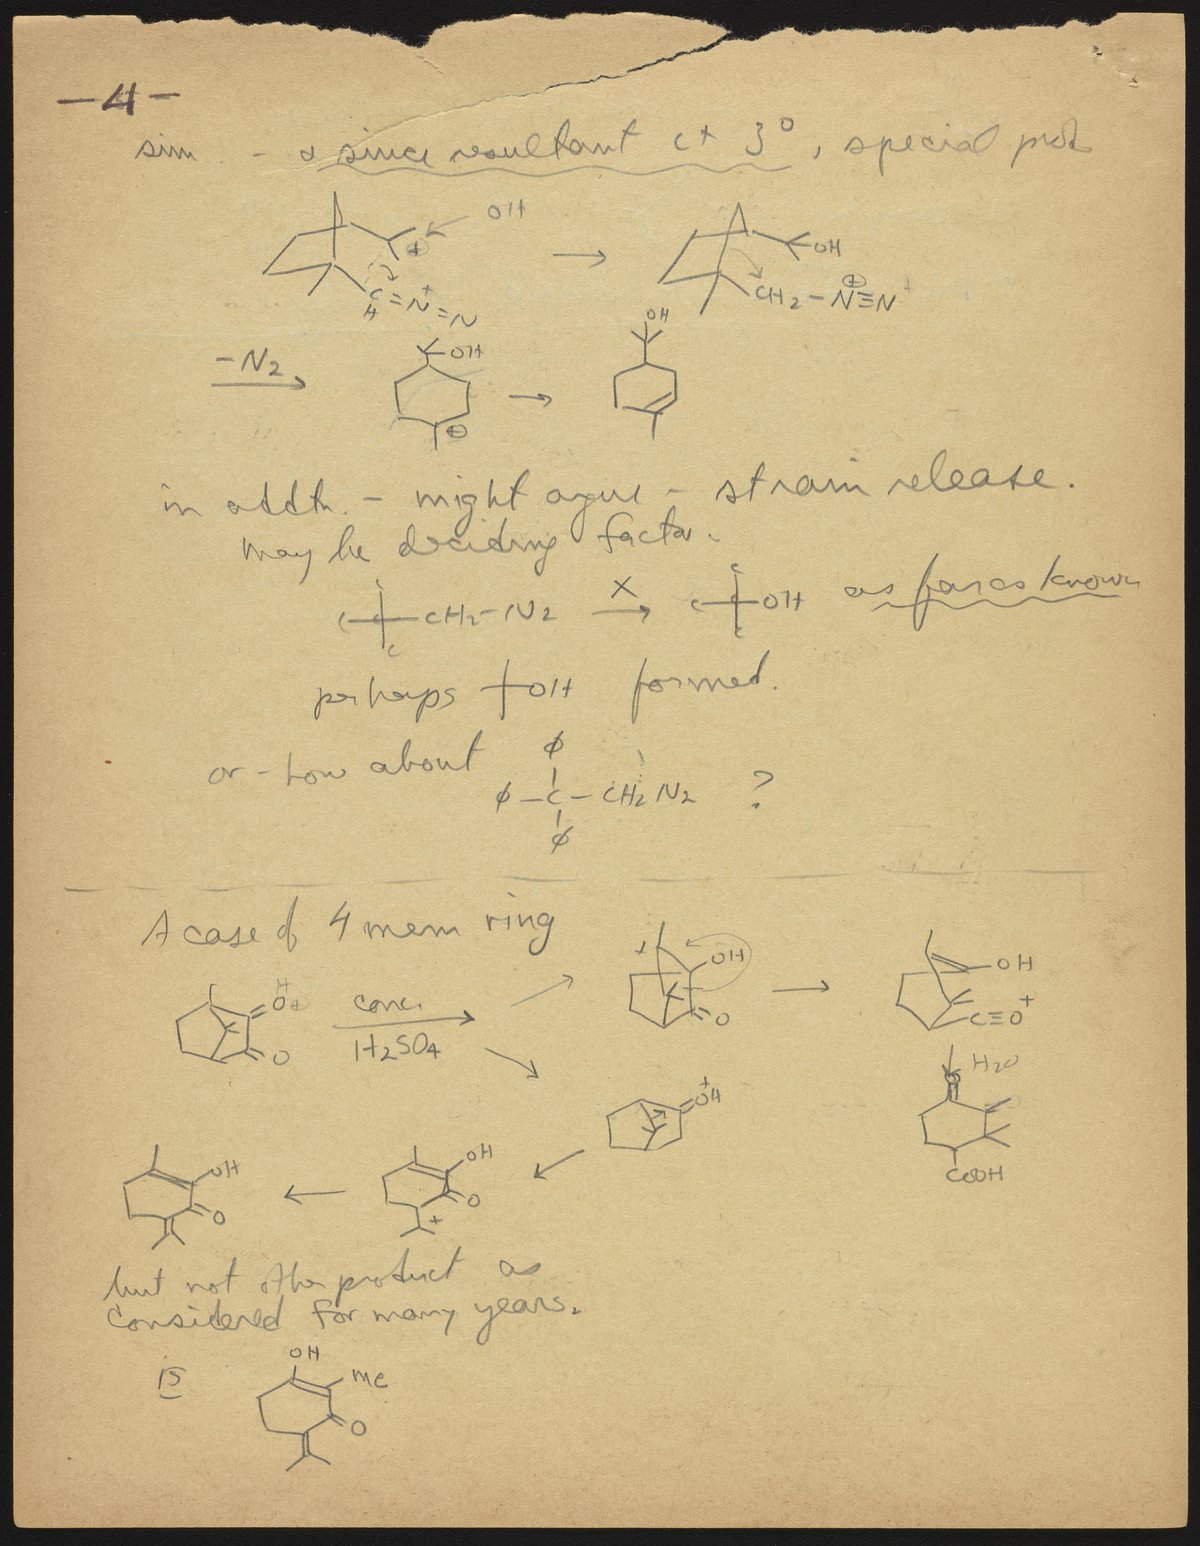 -4-
sim. - & since resultant C+ 3°, special prod
OH
⊕
C=N=N
H
+
OH
CH2-N≡N
⊕
-N2
OH
⊕
OH
in addtn. - might argue - strain release.
may be deciding factor.
C
C-C-CH2-N2
C
X
C
C-C-OH
C
as far as known
perhaps
OH
formed.
or - how about
φ
φ-C-CH2N2
φ
?
A case of 4 mem ring
H
O+
O
conc.
H2SO4
+
OH
O
OH
C≡O+
H2O
O
COOH
+
OH
OH
O
OH
O
+
but not other product as
considered for many years.
is
OH
Me
O